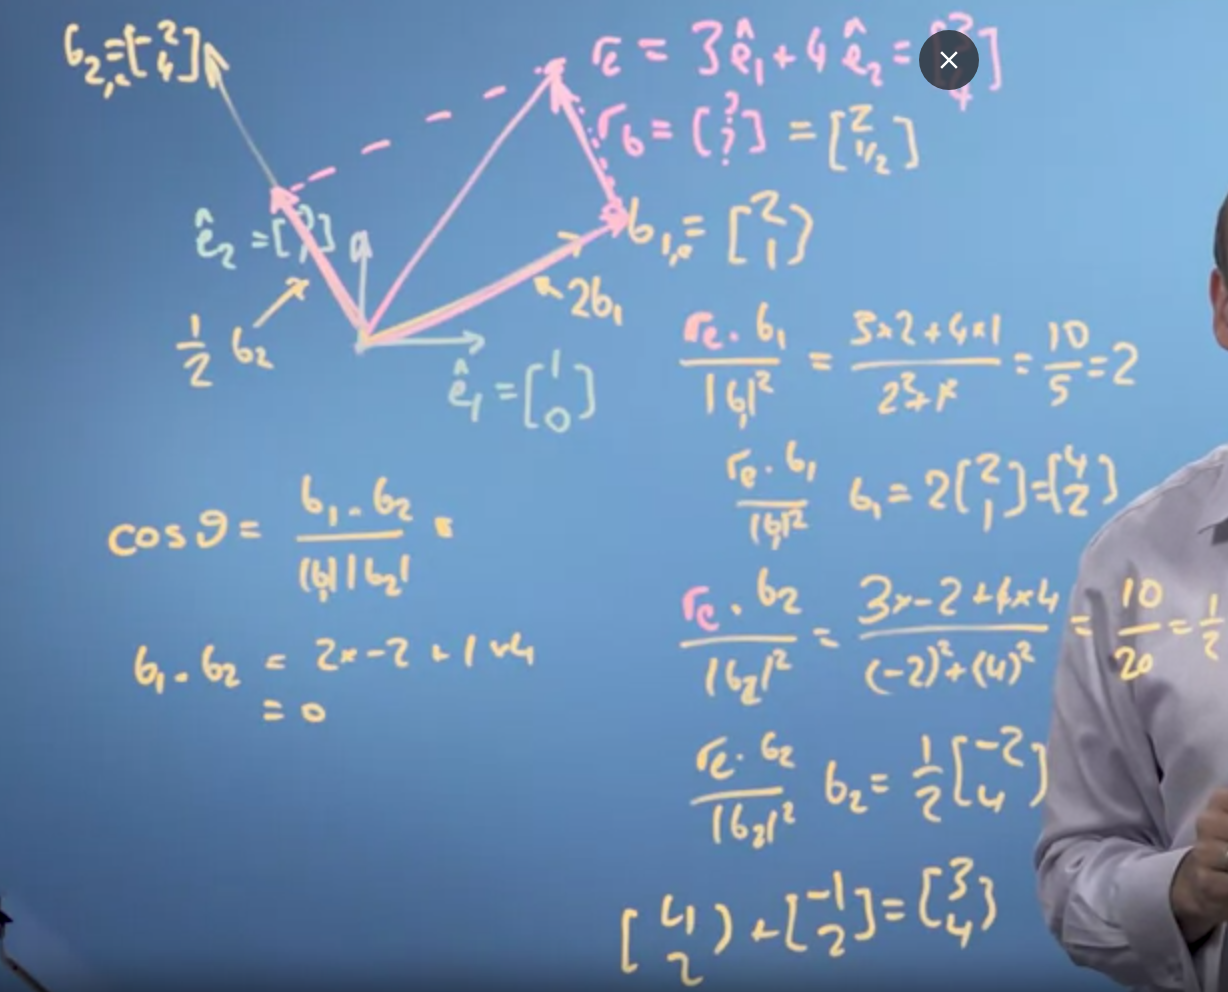 b₂,ₑ = [-2 4]
rₑ = 3ê₁ + 4ê₂ = [3 4]
r_b = [? ?] = [2 1/2]
b₁,ₑ = [2 1]
ê₂ = [0 1]
2b₁
1/2 b₂
ê₁ = [1 0]
rₑ · b₁ / |b₁|² = 3×2 + 4×1 / 2² + 1² = 10/5 = 2
rₑ · b₁ / |b₁|² b₁ = 2[2 1] = [4 2]
cos θ = b₁ · b₂ / |b₁| |b₂| =
rₑ · b₂ / |b₂|² = 3×-2 + 4×4 / (-2)² + (4)² = 10/20 = 1/2
b₁ · b₂ = 2×-2 + 1×4
= 0
rₑ · b₂ / |b₂|² b₂ = 1/2 [-2 4]
[4 2] + [-1 2] = [3 4]